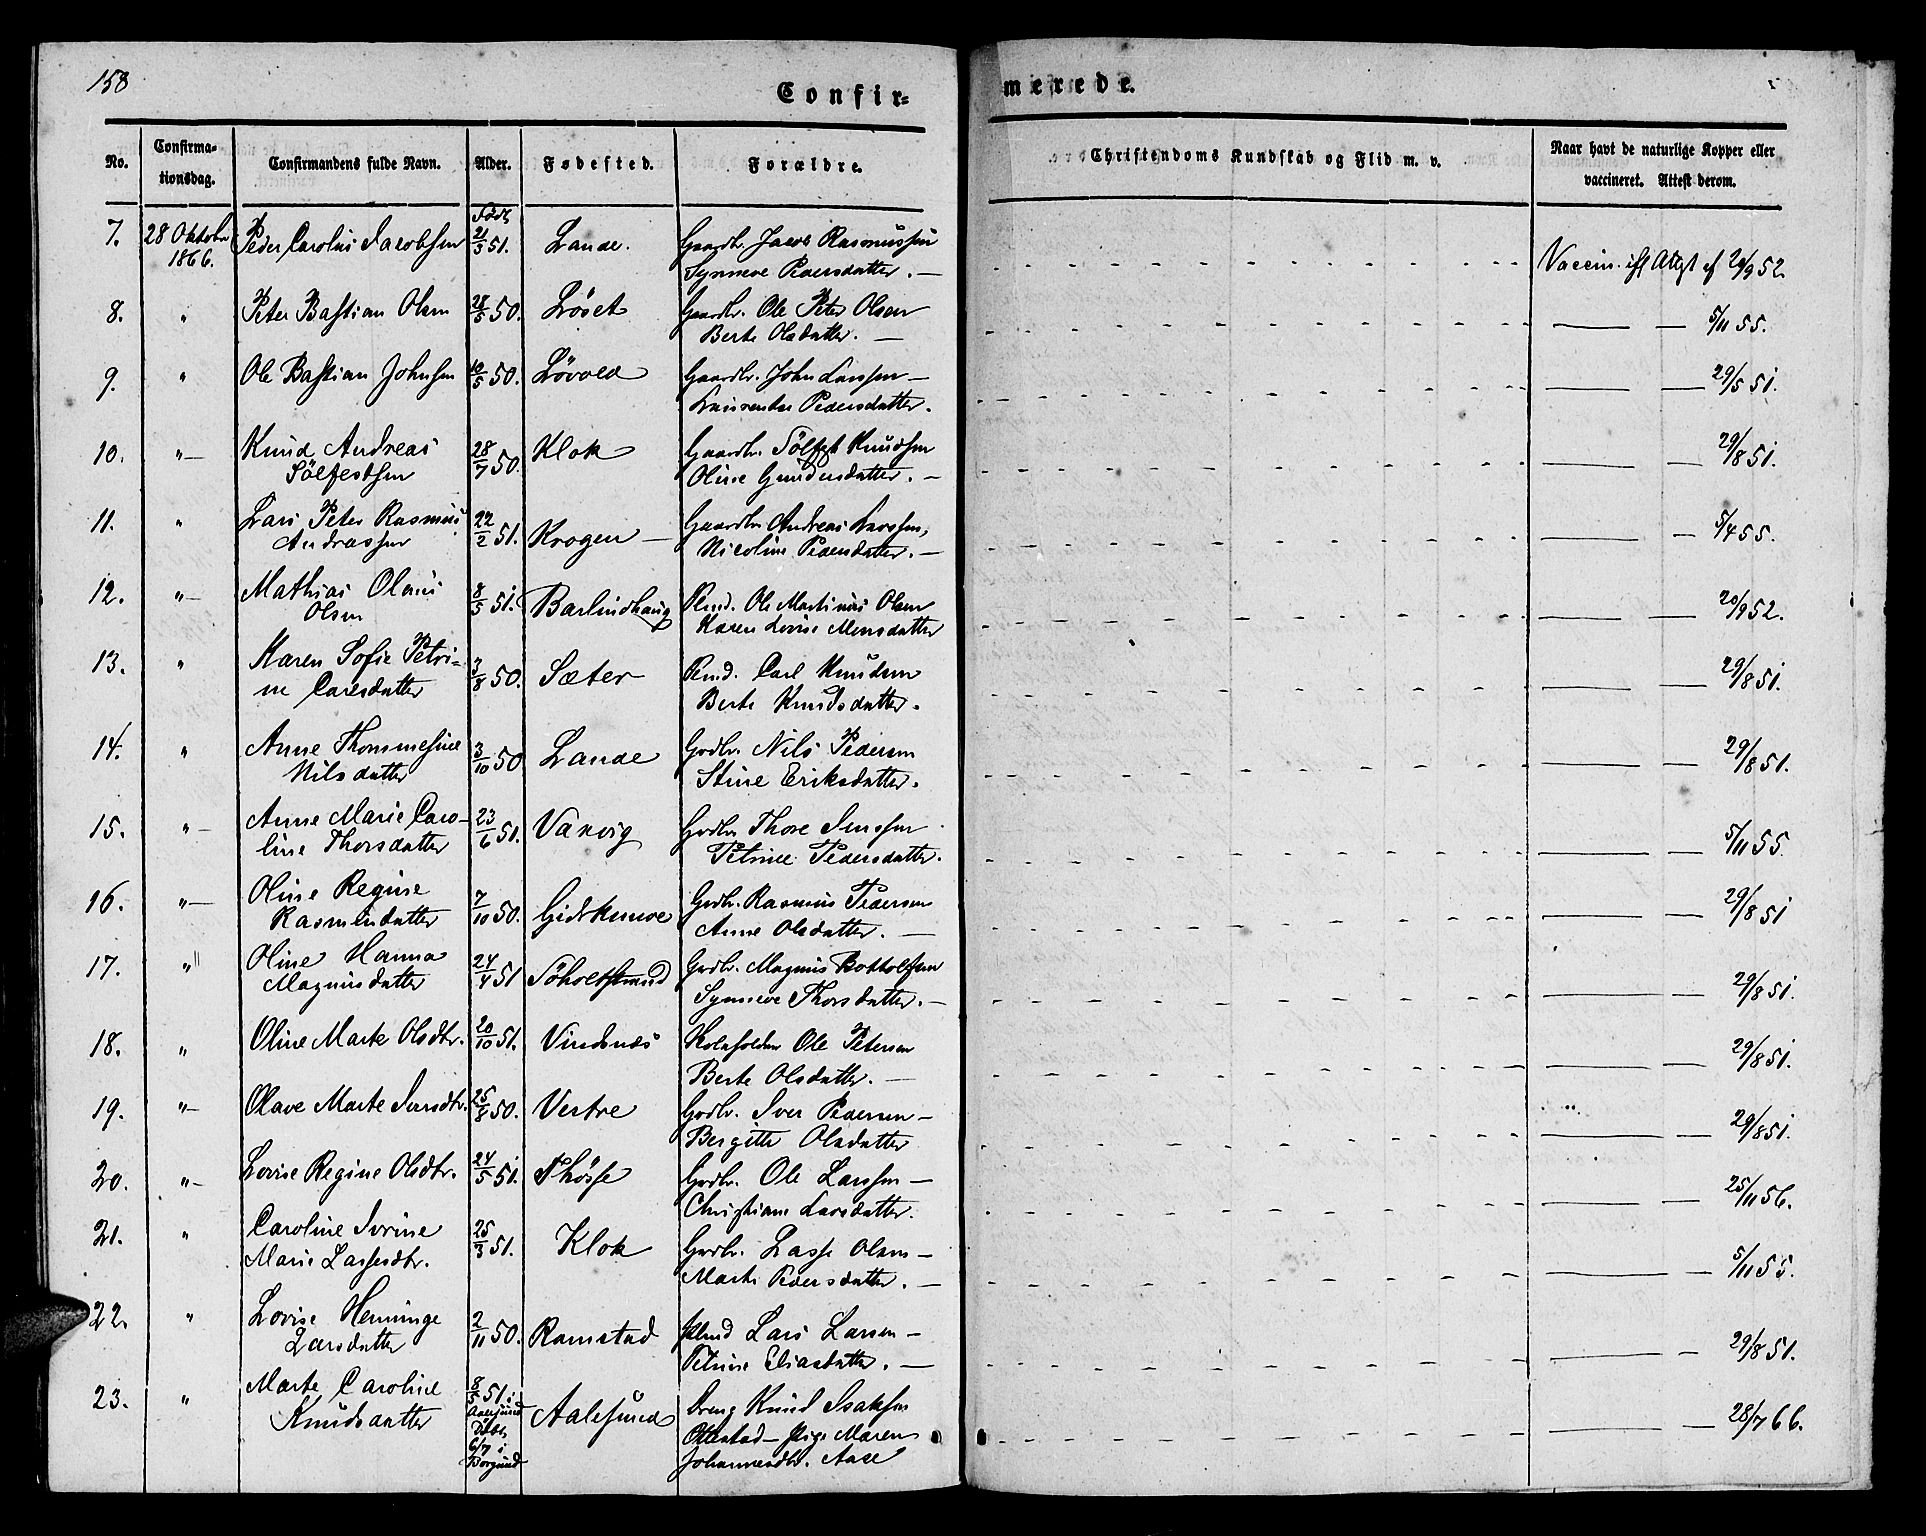 158
Confir=
merede.
No. Confirma-tionsdag. Confirmandens fulde Navn. Alder. Fødested. Forældre. Christendoms Kundskab og Flid m. v. Naar havt de naturlige Kopper eller vaccineret. Attest derom.
7. 28 Oktober 1866. Peder Carolus Jacobsen Födt 21/3 51. Lande. Gaardbr. Jacob Rasmussen
Synneve Pedersdatter. — Vaccin. ifl Attest af 20/9 52.
8. " Peter Bastian Olsen 28/5 50. Löset Gaardbr. Ole Peter Olsen
Berte Olsdatter. — 5/11 55.
9. " Ole Bastian Johnsen 10/5 50. Lövold Gaardbr. John Larsen —
Laurentze Pedersdatter. 29/5 51.
10. "— Knud Andreas 28/7 50. Klok Gaardbr. Sölfest Knudsen
Sölfestsen Oline Gundersdatter. — 29/8 51.
11. " Lars Peter Rasmus 22/2 51. Krogen — Gaardbr. Andreas Larssen,
Andreassen Nicoline Pedersdatter. — 5/4 55.
12. "— Mathias Olaus 8/5 51. Barlindhaug Plmd. Ole Martinus Olsen
Olsen Karen Lovise Monsdatter 20/9 52.
13. " Karen Sofie Petri- 3/8 50. Sæter Plmd. Carl Knudsen
ne Carlsdatter Berte Knudsdatter. 29/8 51.
14. " Anne Thommesine 3/10 50 Lande Grdbr. Nils Pedersen
Nilsdatter Stine Eriksdatter. 29/8 51.
15. "— Anne Marie Caro- 23/6 51. Vaxvig Grdbr Thore Jenssen
line Thorsdatter Petrine Pedersdatter. 5/11 55.
16. "— Oline Regine 7/10 50. Gidskemoe Grdbr. Rasmus Pedersen
Rasmusdatter Anne Olsdatter. — 29/8 51
17. " Oline Hanna 24/4 51 Söholtstrand Grdbr. Magnus Bottolfsen
Magnusdatter Synneve Thorsdatter. — 29/8 51.
18. " Oline Marte Olsdtr. 20/10 51. Vindsnæs Ole Petersen
Berte Olsdatter. — 29/8 51.
19. "— Olave Marte Iversdtr. 25/8 50. Vestre Grdbr. Iver Pedersen —
Bergitte Olsdatter 29/8 51.
20. "— Lovise Regine Olsdtr. 24/5 51. Thösse Grdbr. Ole Larssen —
Christiane Larsdatter. 25/11 56.
21. " Caroline Severine 25/3 51. Klok Grdbr. Lasse Olsen —
Marie Lassesdtr. Marte Pedersdatter. — 5/11 55.
22. " Lovise Henninge 2/11 50. Ramstad Plmd Lars Larsen —
Larsdatter Petrine Eliasdatter. — 29/8 51.
23. " Marte Caroline 8/5 51. i Aalesund Döbt 6/7 i Borgund Aalesund Dreng Knud Isaksen
Knudsdatter Ottestad — Pige Maren
Johannesdtr. Aase 28/7 66.